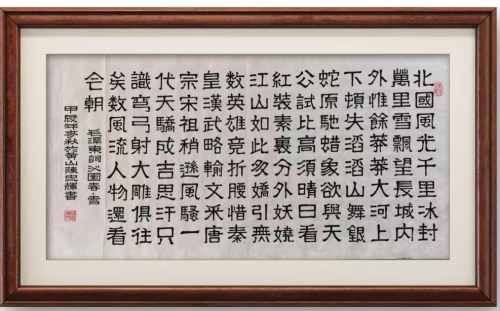 北國風光千里冰封
萬里雪飄望長城内
外惟餘莽莽大河上
下頓失滔滔山舞銀
蛇原馳蜡象欲與天
公試比高須晴日看
紅裝素裹分外妖嬈
江山如此多嬌引無
数英雄竞折腰惜秦
皇漢武略輸文采唐
宗宋祖稍遜風騷一
代天驕成吉思汗只
識弯弓射大雕俱往
矣数風流人物還看
今朝
毛澤東詞沁園春雪
甲辰年麥秋於黄山陳忠輝書